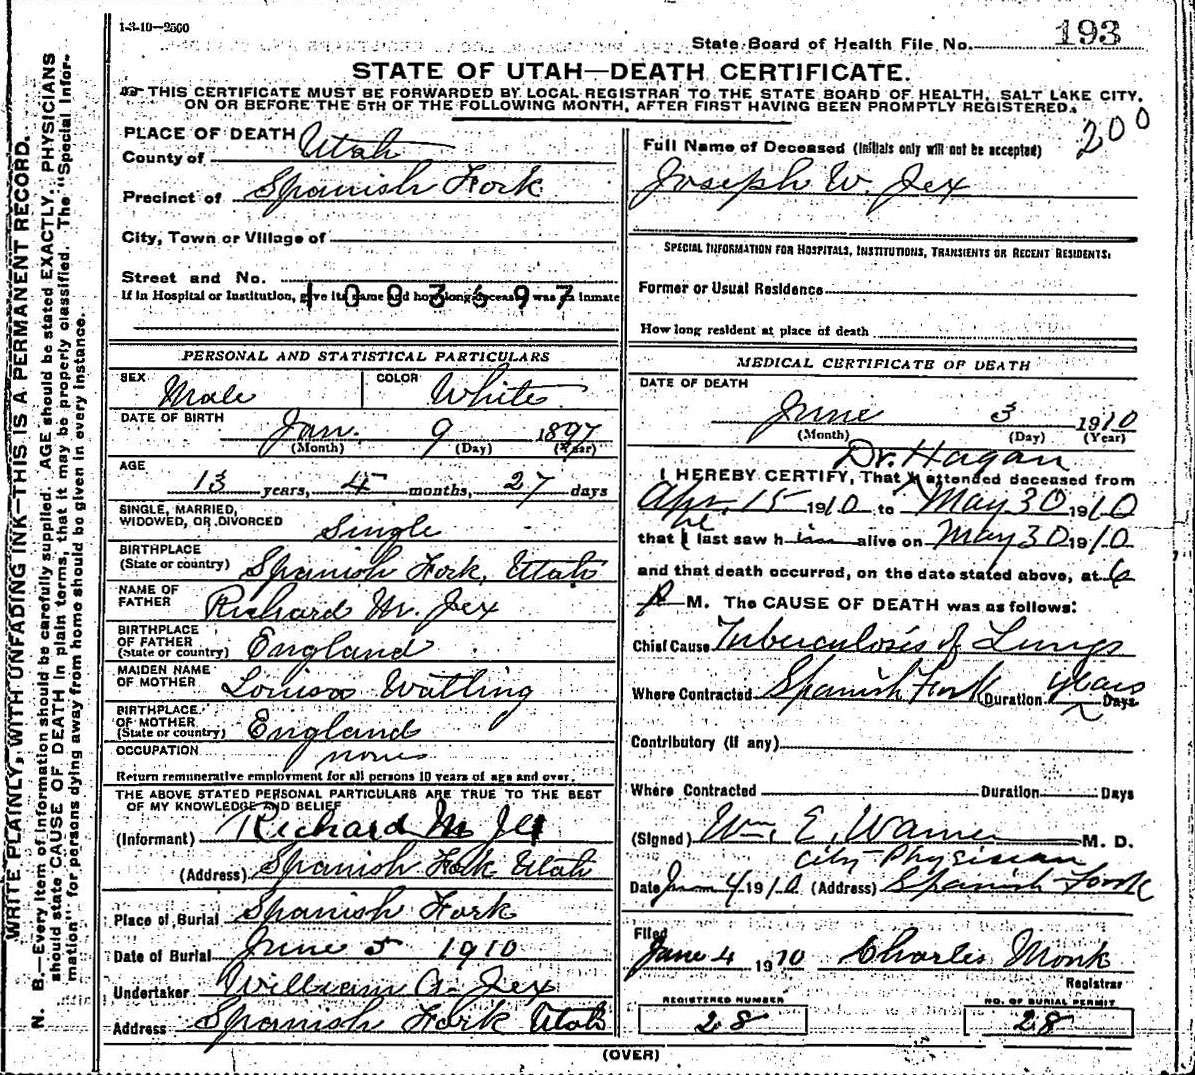 1-3-10—2500
State Board of Health File No. 193
STATE OF UTAH—DEATH CERTIFICATE.
THIS CERTIFICATE MUST BE FORWARDED BY LOCAL REGISTRAR TO THE STATE BOARD OF HEALTH, SALT LAKE CITY,
ON OR BEFORE THE 5TH OF THE FOLLOWING MONTH, AFTER FIRST HAVING BEEN PROMPTLY REGISTERED.
200
PLACE OF DEATH
County of Utah
Precinct of Spanish Fork
City, Town or Village of
Street and No.
If in Hospital or Institution, give its name and how long deceased was an inmate
1003597
PERSONAL AND STATISTICAL PARTICULARS
SEX Male COLOR White
DATE OF BIRTH Jan. 9 1897
(Month) (Day) (Year)
AGE
13 years, 4 months, 27 days
SINGLE, MARRIED,
WIDOWED, OR DIVORCED Single
BIRTHPLACE
(State or country) Spanish Fork, Utah
NAME OF
FATHER Richard M. Jex
BIRTHPLACE
OF FATHER
(State or country) England
MAIDEN NAME
OF MOTHER Louisa Watling
BIRTHPLACE
OF MOTHER
(State or country) England
OCCUPATION none
Return remunerative employment for all persons 10 years of age and over.
THE ABOVE STATED PERSONAL PARTICULARS ARE TRUE TO THE BEST
OF MY KNOWLEDGE AND BELIEF
(Informant) Richard M Jex
(Address) Spanish Fork Utah
Place of Burial Spanish Fork
Date of Burial June 5 1910
Undertaker William A. Jex
Address Spanish Fork Utah
Full Name of Deceased (Initials only will not be accepted)
Joseph W. Jex
SPECIAL INFORMATION FOR HOSPITALS, INSTITUTIONS, TRANSIENTS OR RECENT RESIDENTS:
Former or Usual Residence
How long resident at place of death
MEDICAL CERTIFICATE OF DEATH
DATE OF DEATH
June 3 1910
(Month) (Day) (Year)
Dr. Hagan
I HEREBY CERTIFY, That attended deceased from
Apr. 15 1910 to May 30 1910
he
that I last saw him alive on May 30 1910
and that death occurred, on the date stated above, at 6
P M. The CAUSE OF DEATH was as follows:
Chief Cause Tuberculosis of Lungs
Where Contracted Spanish Fork Duration years Days
Contributory (if any)
Where Contracted Duration Days
(Signed) Wm. E. Warner M. D.
City Physician
Date June 4 1910 (Address) Spanish Fork
Filed
June 4 1910 Charles Monk
Registrar
REGISTERED NUMBER
28
NO. OF BURIAL PERMIT
28
(OVER)
WRITE PLAINLY, WITH UNFADING INK—THIS IS A PERMANENT RECORD.
N. B.—Every item of information should be carefully supplied. AGE should be stated EXACTLY. PHYSICIANS
should state CAUSE OF DEATH in plain terms, that it may be properly classified. The "Special Infor-
mation" for persons dying away from home should be given in every instance.